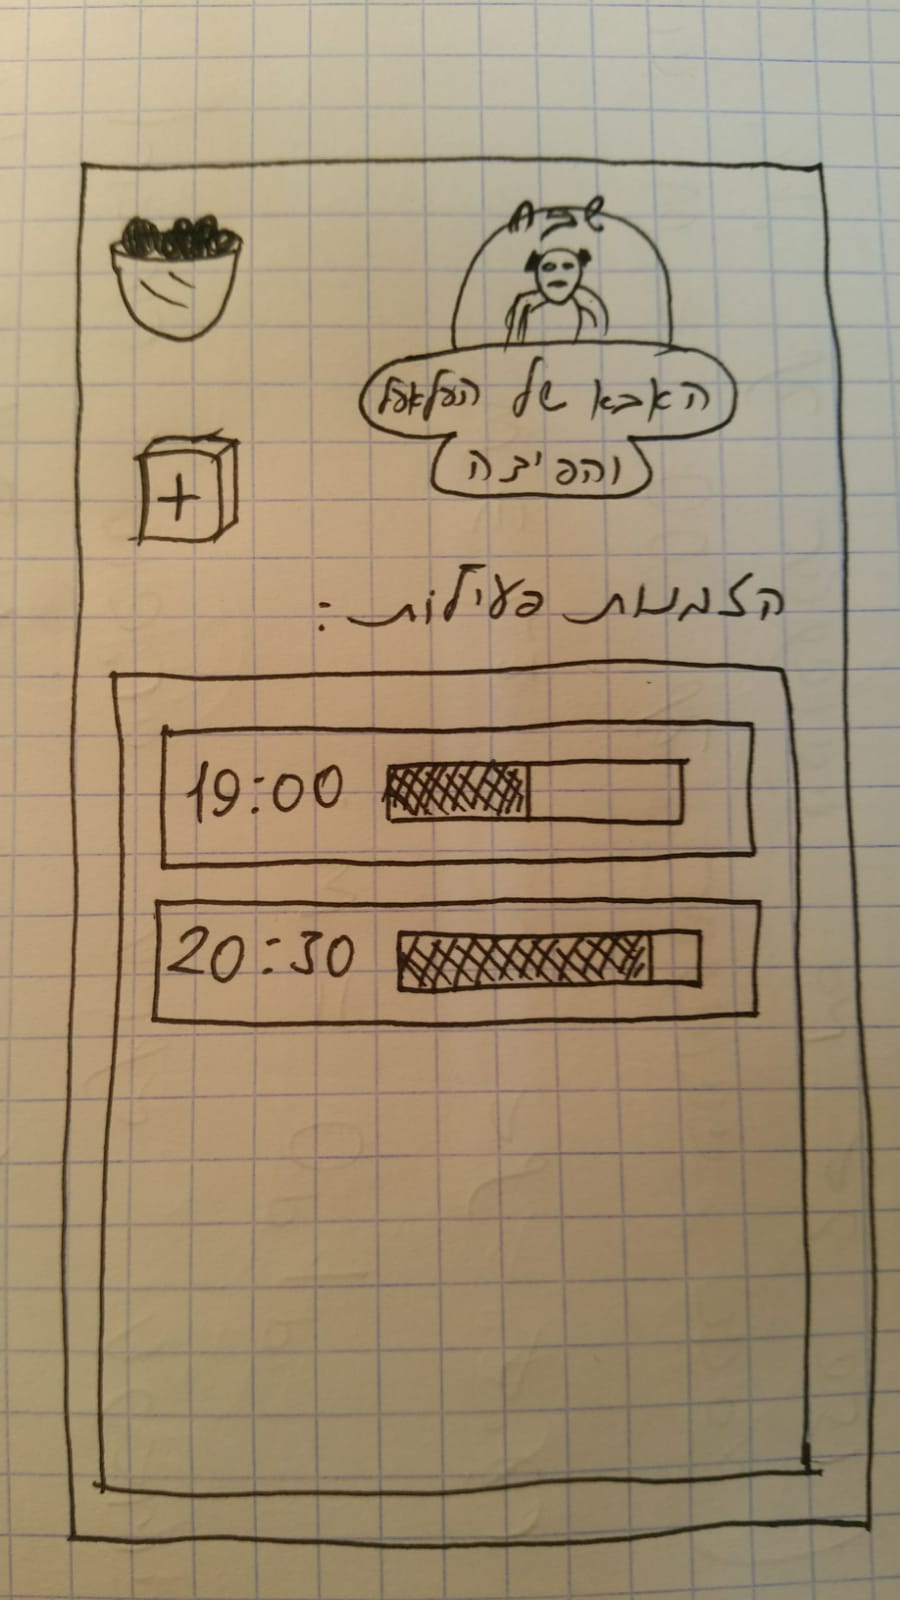 שבח
האבא של הפלאפל
והפיצה
+
הזמנות פעילות:
19:00
20:30